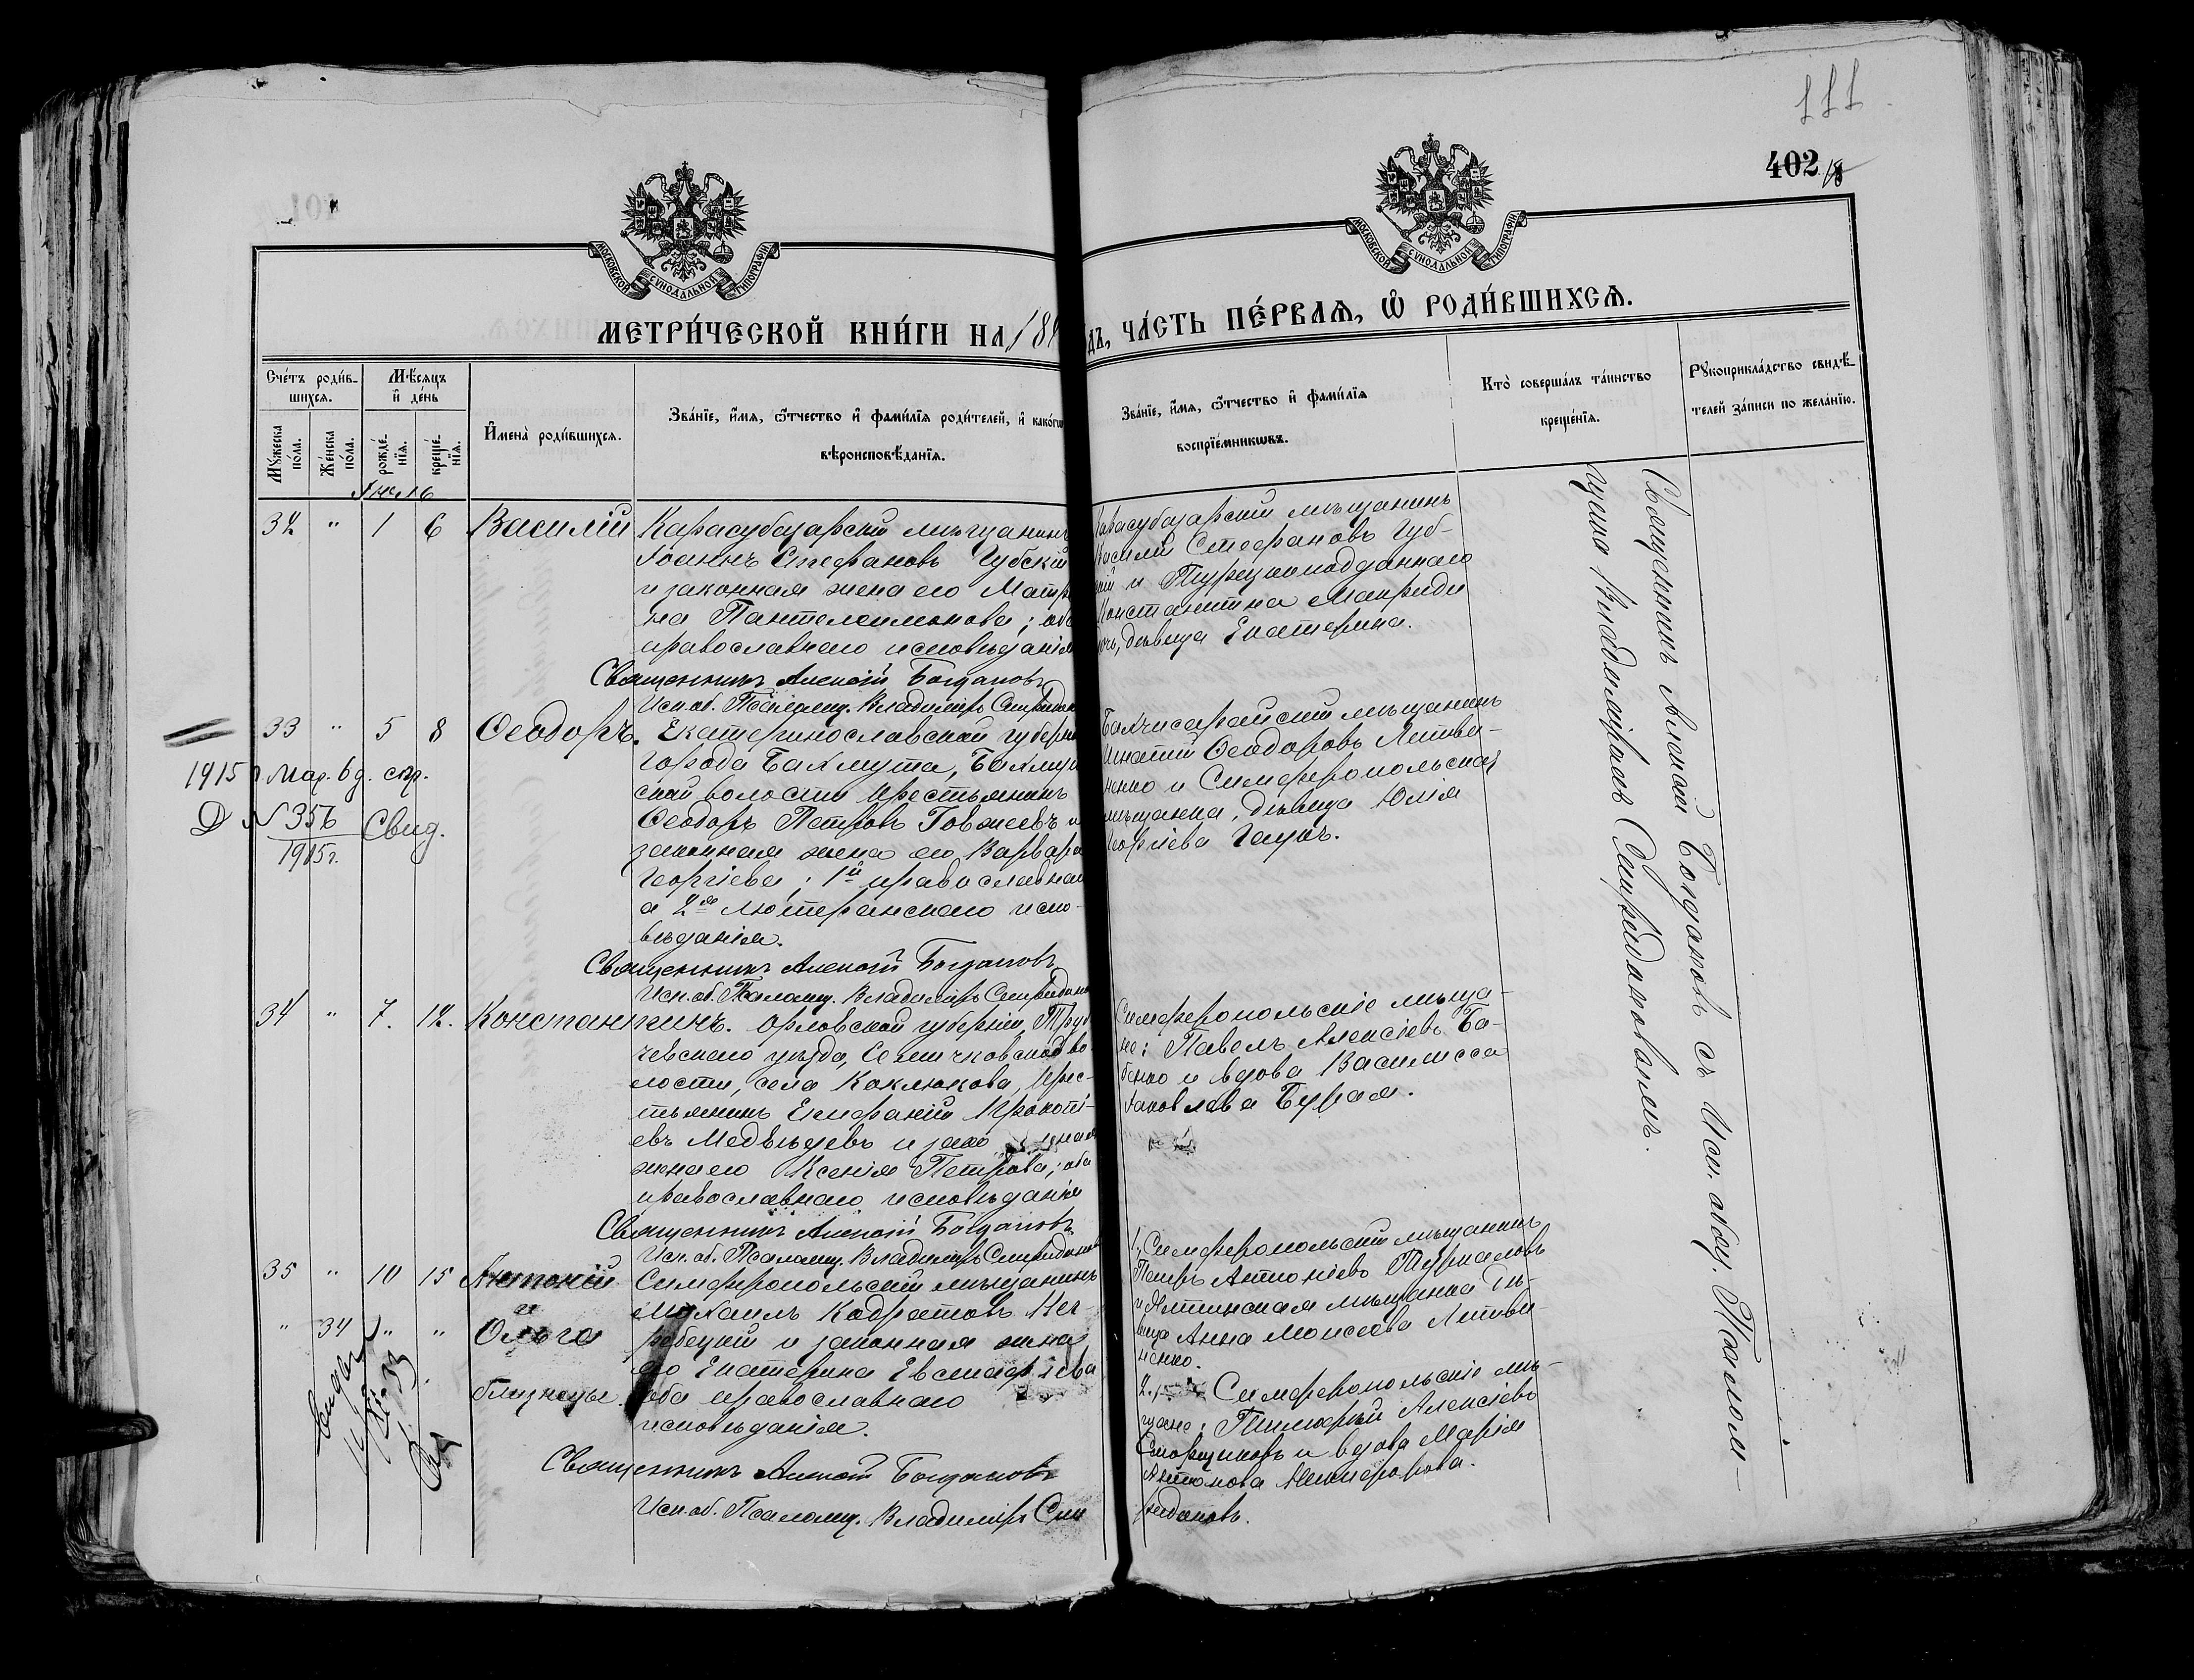 111
402
МОСКОВСКОЙ СѴНОДАЛЬНОЙ ТИПОГРАФІИ
МОСКОВСКОЙ СѴНОДАЛЬНОЙ ТИПОГРАФІИ
МЕТРИ́ЧЕСКОЙ КНИ́ГИ НА 18
дъ, ЧА́СТЬ ПЕ́РВАѦ, Ѽ РОДИ́ВШИХСѦ.
Сче́тъ роди́в-
шихся.
Мѣ́сяцъ
и҆ де́нь
Мꙋ́жеска по́ла.
Же́нска по́ла.
рожде́-нїя.
креще́-нїя.
И҆мена̀ роди́вшихся.
Зва́нїе, и҆́мя, ѻ҆́тчество и҆ фами́лїя роди́телей, и҆ како́гѡ
вѣроисповѣ́данїя.
Зва́нїе, и҆́мя, ѻ҆́тчество и҆ фами́лїя
воспрїе́мникѡвъ.
Кто̀ соверша́лъ та́инство
креще́нїя.
Рꙋкоприкла́дство свидѣ́-
телей за́писи по жела́нїю.
32 " 1 6 Василій
Карасубазарскій мѣщанинъ
Іоаннъ Стефановъ Губскій
и законная жена его Матр
на Пантелеимонова; оба
православнаго исповѣданія
Священникъ Алексій Богдановъ
Исп. об. Псаломщ. Владиміръ Спиридонов
Карасубазарскій мѣщанинъ
Василій Стефановъ Губ-
скій и Турецкоподданнаго
Константина Мавриди
дочь, дѣвица Екатерина.
33 " 5 8 Ѳеодоръ.
1915 г. Мар. 6 д. спр.
№ 356
1915 г.
Свид.
Екатеринославской губерн
города Бахмута, Бахму
ской волости крестьянинъ
Ѳеодоръ Петровъ Говжеевъ и
законная жена его Варвара
Георгіева; 1й православна
а 2я лютеранскаго испо-
вѣданія.
Священникъ Алексій Богдановъ
Исп. об. Псаломщ. Владиміръ Спиридонов
Бахчисарайскій мѣщанинъ
Игнатій Ѳеодоровъ Литви-
ненко и Симферопольская
мѣщанка, дѣвица Юлія
Георгіева Гаукъ.
34 " 7. 12. Константинъ.
Орловской губерніи, Труб
чевскаго уѣзда, Семячковской во
лости, села Коклюкова, крес-
тьянинъ Епифаній Прокопі-
евъ Медвѣдевъ и зако ная
жена его Ксенія Петрова; оба
православнаго исповѣданія
Священникъ Алексій Богдановъ
Исп. об. Псаломщ. Владиміръ Спиридонов
Симферопольскіе мѣща-
не: Павелъ Алексіевъ Ба-
бенко и вдова Василисса
Яковлева Бурая.
35 " 10 15 Антоній
" 34 " " Ольга
близнецы.
Симферопольскій мѣщанинъ
Михаилъ Кодратовъ Нег-
ребецкій и законная жена
его Екатерина Евстафіева
оба православнаго
исповѣданія.
Священникъ Алексій Богдановъ
Исп. об. Псаломщ. Владиміръ Спи
ридоновъ.
1, Симферопольскій мѣщанинъ
Петръ Антоніевъ Турналовъ
и Ялтинская мѣщанка дѣ-
вица Анна Моисеева Литви-
ненко.
2, Симферопольскіе мѣ-
щане: Тимофей Алексіевъ
Сморщиковъ и вдова Марія
Антонова Никифорова.
Священникъ Алексій Богдановъ съ Исп. обяз. Псалом-
щика Владиміромъ Спиридоновымъ.